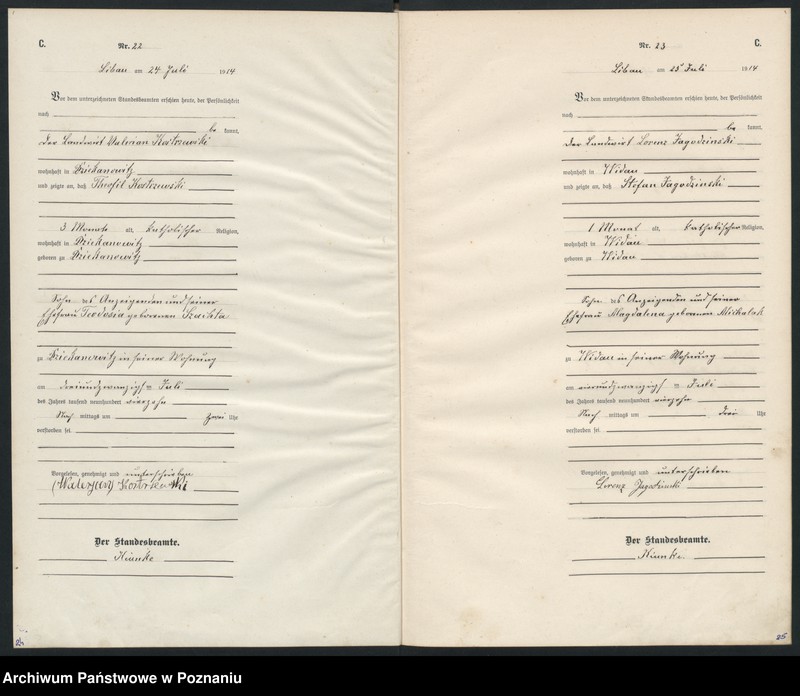 C.
Nr. 22
Libau am 24 Juli 1914
Vor dem unterzeichneten Standesbeamten erschien heute, der Persönlichkeit
nach
be kannt,
der Landwirt Valerian Kostrzewski
wohnhaft in Dziekanowitz
und zeigte an, daß Theofil Kostrzewski
3 Monate alt, katholischer Religion,
wohnhaft in Dziekanowitz
geboren zu Dziekanowitz
Sohn des Anzeigenden und seiner
Ehefrau Teodosia geborenen
zu Dziekanowitz in seiner Wohnung
am dreiundzwanzigsten Juli
des Jahres tausend neunhundert vierzehn
Nach mittags um zwei Uhr
verstorben sei.
Vorgelesen, genehmigt und unterschrieben
(Waleryan) Kostrzewski
Der Standesbeamte.
24
C.
Nr. 23
Libau am 25 Juli 1914
Vor dem unterzeichneten Standesbeamten erschien heute, der Persönlichkeit
nach
be kannt,
der Landwirt Lorenz Jagodzinski
wohnhaft in Widau
und zeigte an, daß Stefan Jagodzinski
1 Monat alt, katholischer Religion,
wohnhaft in Widau
geboren zu Widau
Sohn des Anzeigenden und seiner
Ehefrau Magdalena geborenen Michalak
zu Widau in seiner Wohnung
am vierundzwanzigsten Juli
des Jahres tausend neunhundert vierzehn
Nach mittags um drei Uhr
verstorben sei.
Vorgelesen, genehmigt und unterschrieben
Lorenz Jagodzinski
Der Standesbeamte.
25
Archiwum Państwowe w Poznaniu